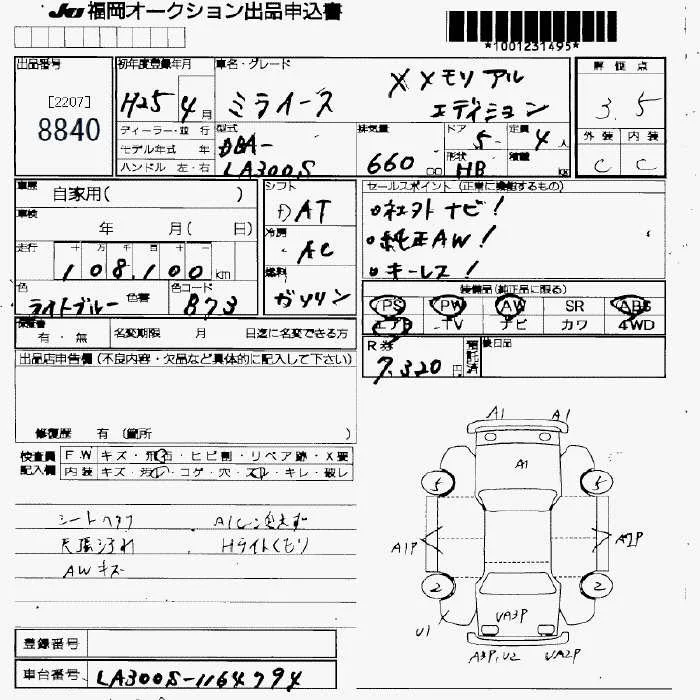 JU 福岡オークション出品申込書
*1001231495*
出品番号
[2207]
8840
初年度登録年月
H25 4月
車名・グレード
ミライース
X メモリアル
エディション
評価点
3.5
外装 内装
C C
ディーラー・並行
モデル年式 年
ハンドル 左・右
型式
DBA-
LA300S
排気量
660 cc
ドア
5
定員
4人
形状
HB
積載
kg
車歴
自家用( )
車検
年 月( 日)
走行
十 万 千 百 十
108,100 km
色
ライトブルー
色替
色コード
B73
シフト
DAT
冷房
AC
燃料
ガソリン
セールスポイント (正常に機能するもの)
・社外ナビ!
・純正AW!
・キーレス!
装備品(純正品に限る)
PS PW AW SR ABS
エアB TV ナビ カワ 4WD
保証書
有・無
名変期限 月 日迄に名変できる方
R券
7,320円
預託済
後日品
出品店申告欄 (不良内容・欠品など具体的に記入して下さい)
修復歴 有 (箇所 )
検査員
記入欄
FW キズ・飛石・ヒビ割・リペア跡・X要
内装 キズ・汚れ・コゲ・穴・スレ・キレ・破レ
シートヘタリ
天張汚れ
Hライトくもり
AWキズ
A1 A1
A1
5 5
A1P
2 2
U1
UA3P
UA2P
登録番号
車台番号
LA300S-1164794